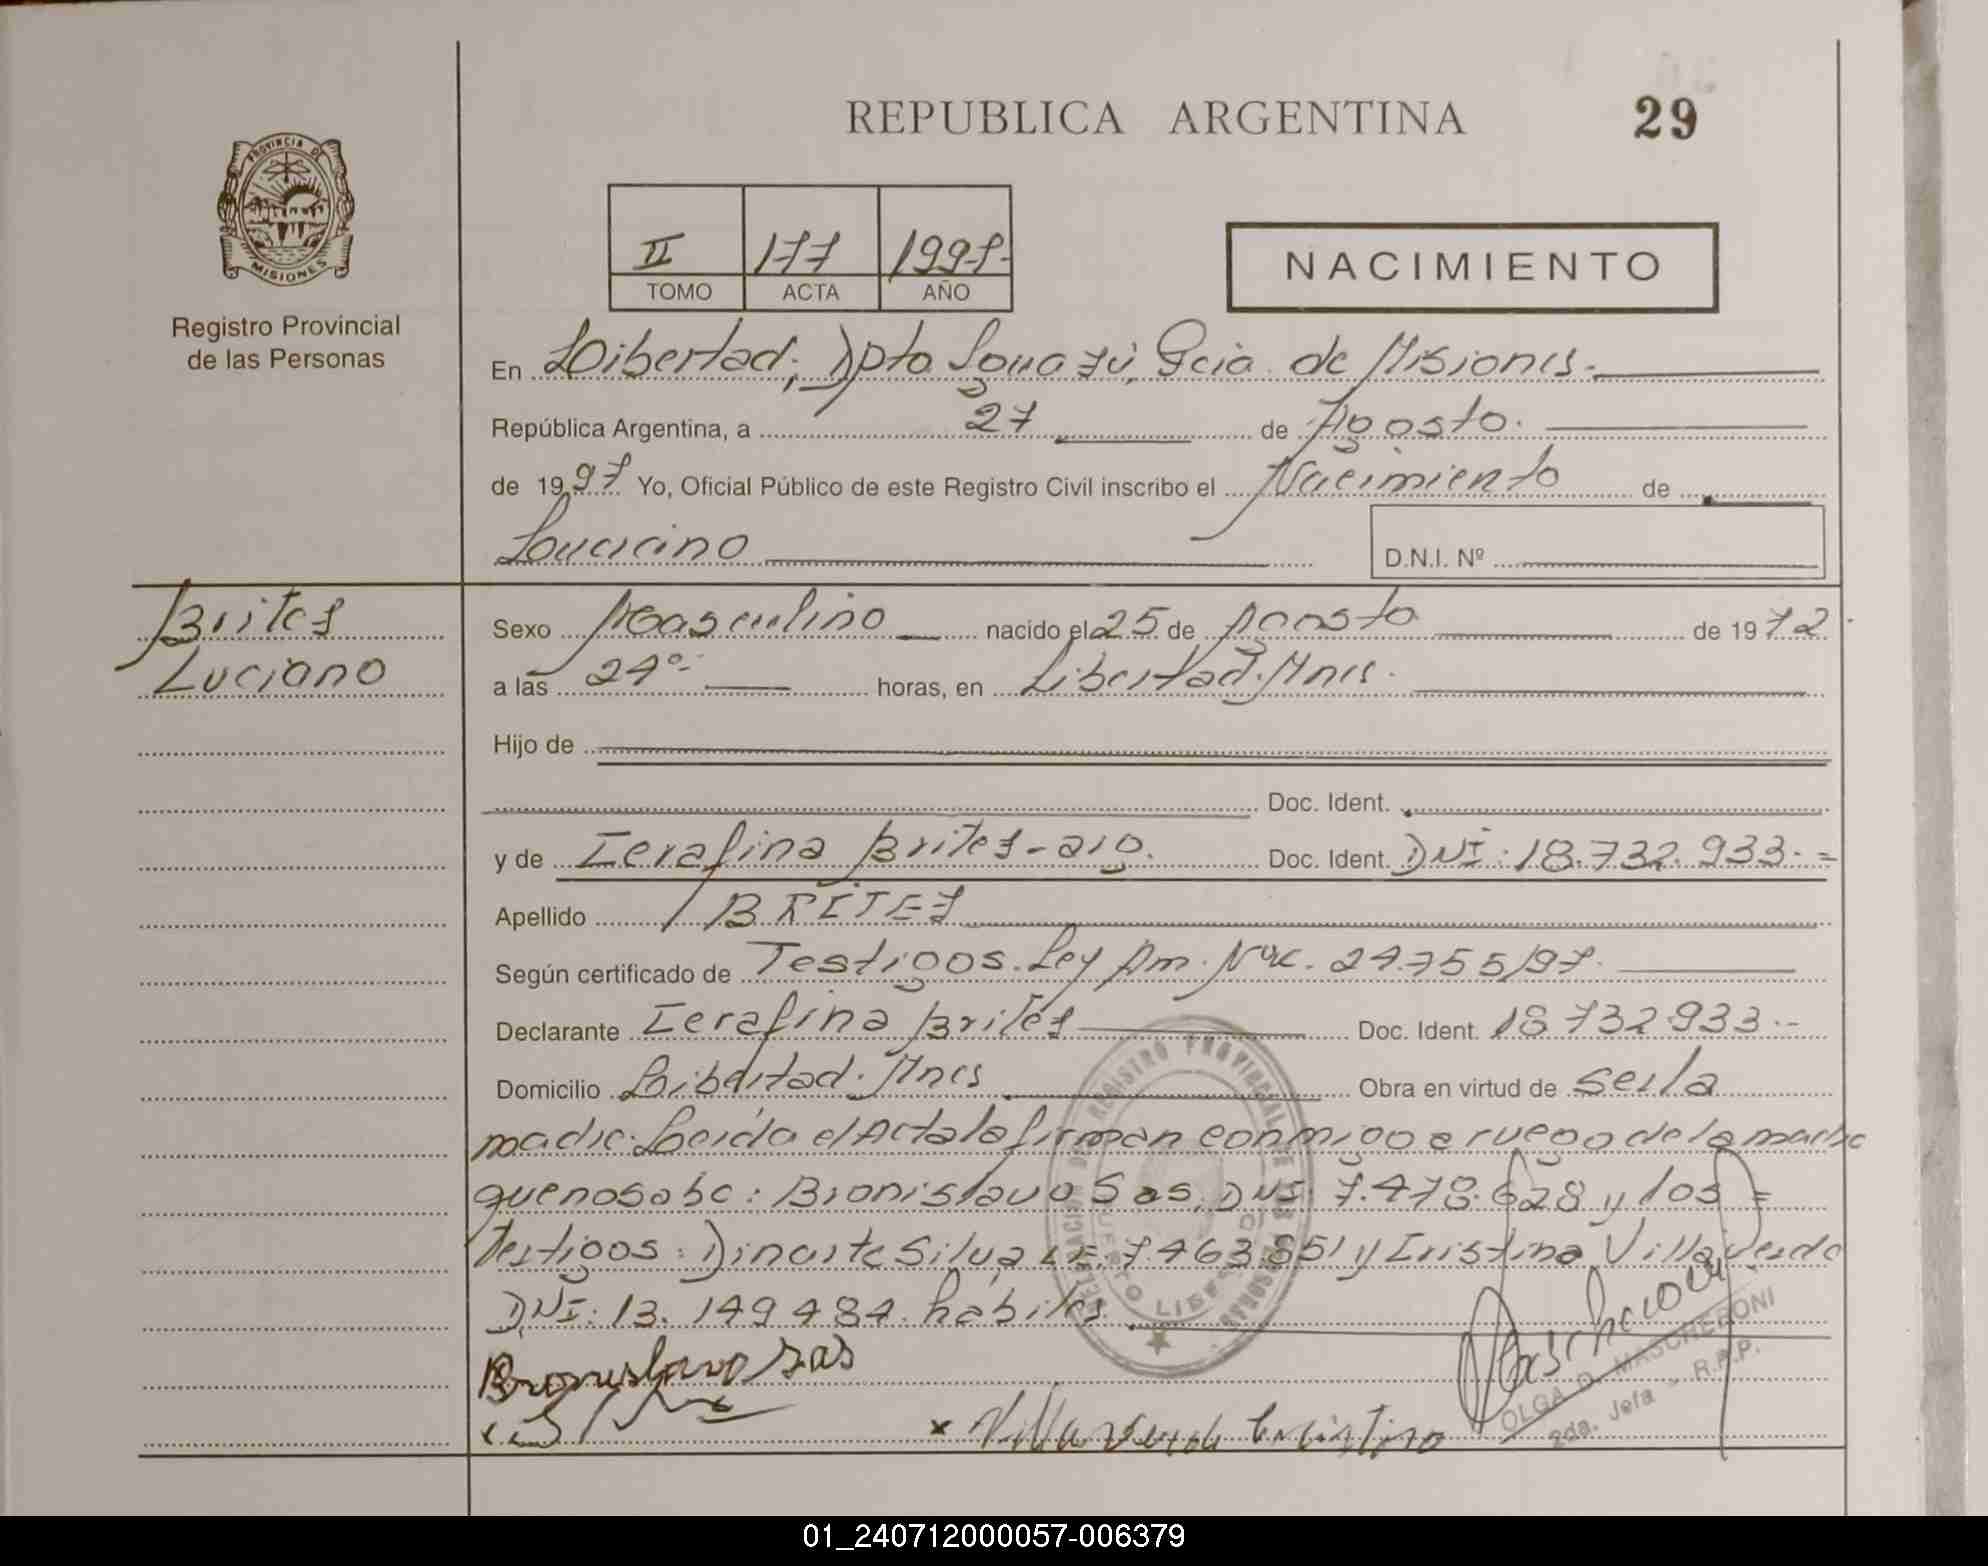 REPUBLICA ARGENTINA
29
PROVINCIA DE
MISIONES
Registro Provincial
de las Personas
II 177 1997.-
TOMO ACTA AÑO
NACIMIENTO
En Libertad, Dpto Iguazú, Pcia de Misiones.-
República Argentina, a 27 de Agosto.
de 1997 Yo, Oficial Público de este Registro Civil inscribo el Nacimiento de
Luciano
D.N.I. Nº
Brites
Luciano
Sexo Masculino nacido el 25 de Agosto de 1972
a las 24º- horas, en Libertad. Mnes.
Hijo de
Doc. Ident.
y de Serafina Brites-arg. Doc. Ident. DNI: 18.732.933.-
Apellido BRITES
Según certificado de Testigos. Ley Am. Nac. 24.755/97.
Declarante Serafina Brites Doc. Ident. 18.732.933.-
Domicilio Libertad. Mnes Obra en virtud de ser la
madre. Leída el Acta la firman conmigo a ruego de la madre
que no sabe: Bronislavo Sas, DNI. 7.478.628 y los =
testigos: Dinarte Silva LE. 7.463.851 y Cristina Villaverde
DNI: 13.149.484. hábiles
Bronislavo Sas
x Villaverde Cristina
Mascheroni
OLGA D. MASCHERONI
2da. Jefa - R.P.P.
01_240712000057-006379